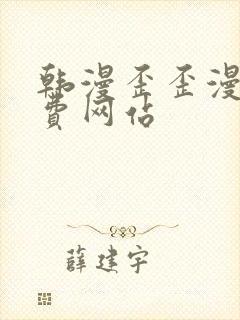 韩漫歪歪漫
费网站
薛建宇